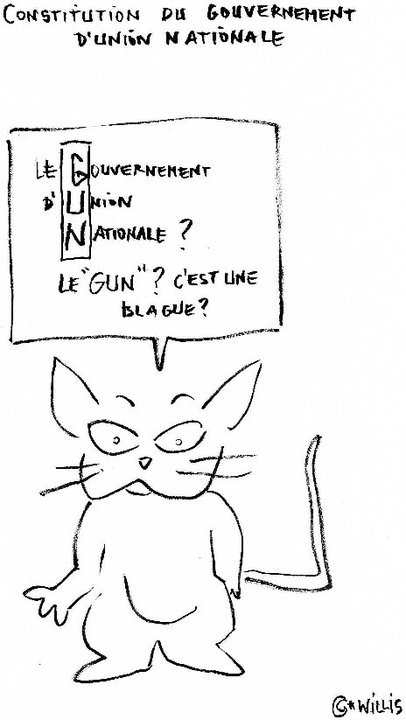 CONSTITUTION DU GOUVERNEMENT
D'UNION NATIONALE
LE GOUVERNEMENT
D'UNION
NATIONALE ?
LE "GUN" ? C'EST UNE
BLAGUE ?
©*WILLIS